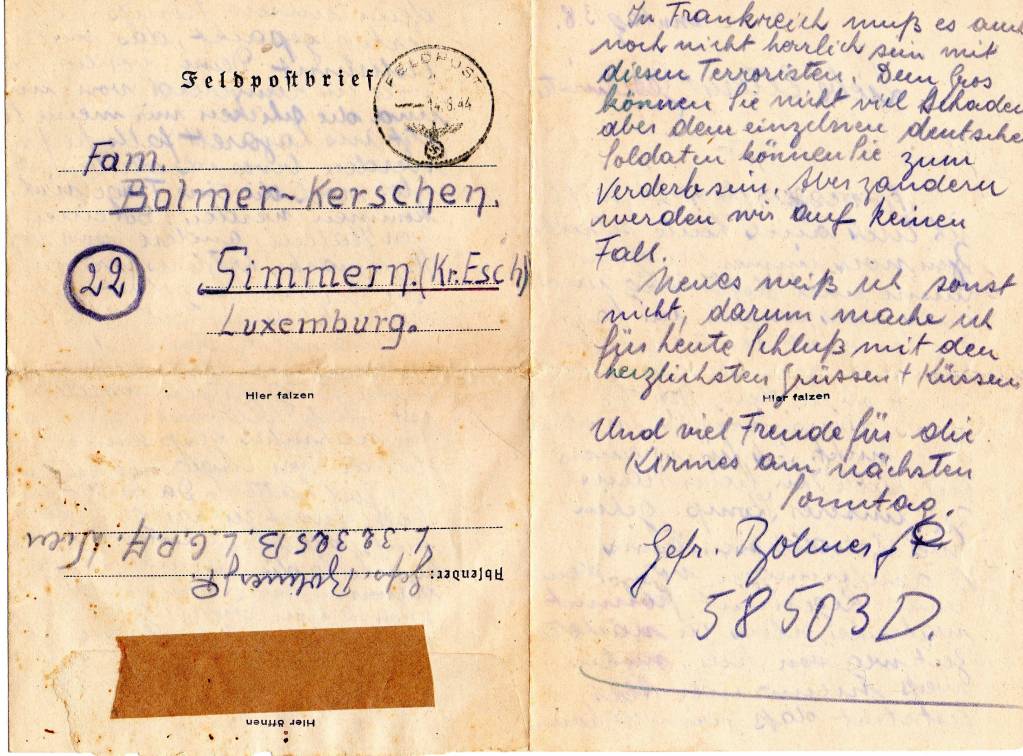 Feldpostbrief
FELDPOST
14.8.44
Fam.
Bolmer-Kerschen.
22
Simmern. (Kr. Esch)
Luxemburg.
Hier falzen
Absender: Gefr. Bolmer
L 32 325 B. L.G.P.A. Wien
Hier öffnen
In Frankreich muß es auch
noch nicht herrlich sein mit
diesen Terroristen. Dem Gros
können Sie nicht viel Schaden
aber dem einzelnen deutschen
Soldaten können Sie zum
Verderb sein. Aber zandern
werden wir auf keinen
Fall.
Neues weiß ich sonst
nicht, darum mache ich
für heute Schluß mit den
herzlichsten Grüssen + Küssen
Hier falzen
Und viel Freude für die
Kirmes am nächsten
Sonntag.
Gefr. Bolmer
58503 D.